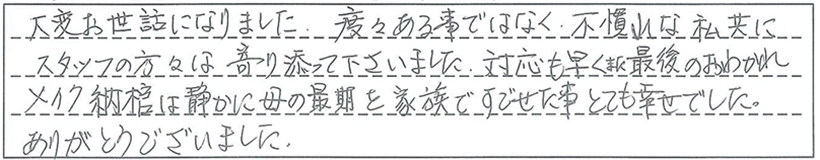 大変お世話になりました. 度々ある事ではなく. 不慣れな私共に
スタッフの方々は 寄り添って下さいました. 対応も早く又最後のおわかれ
メイク納棺は静かに母の最期を家族ですごせた事とても幸せでした。
ありがとうございました.